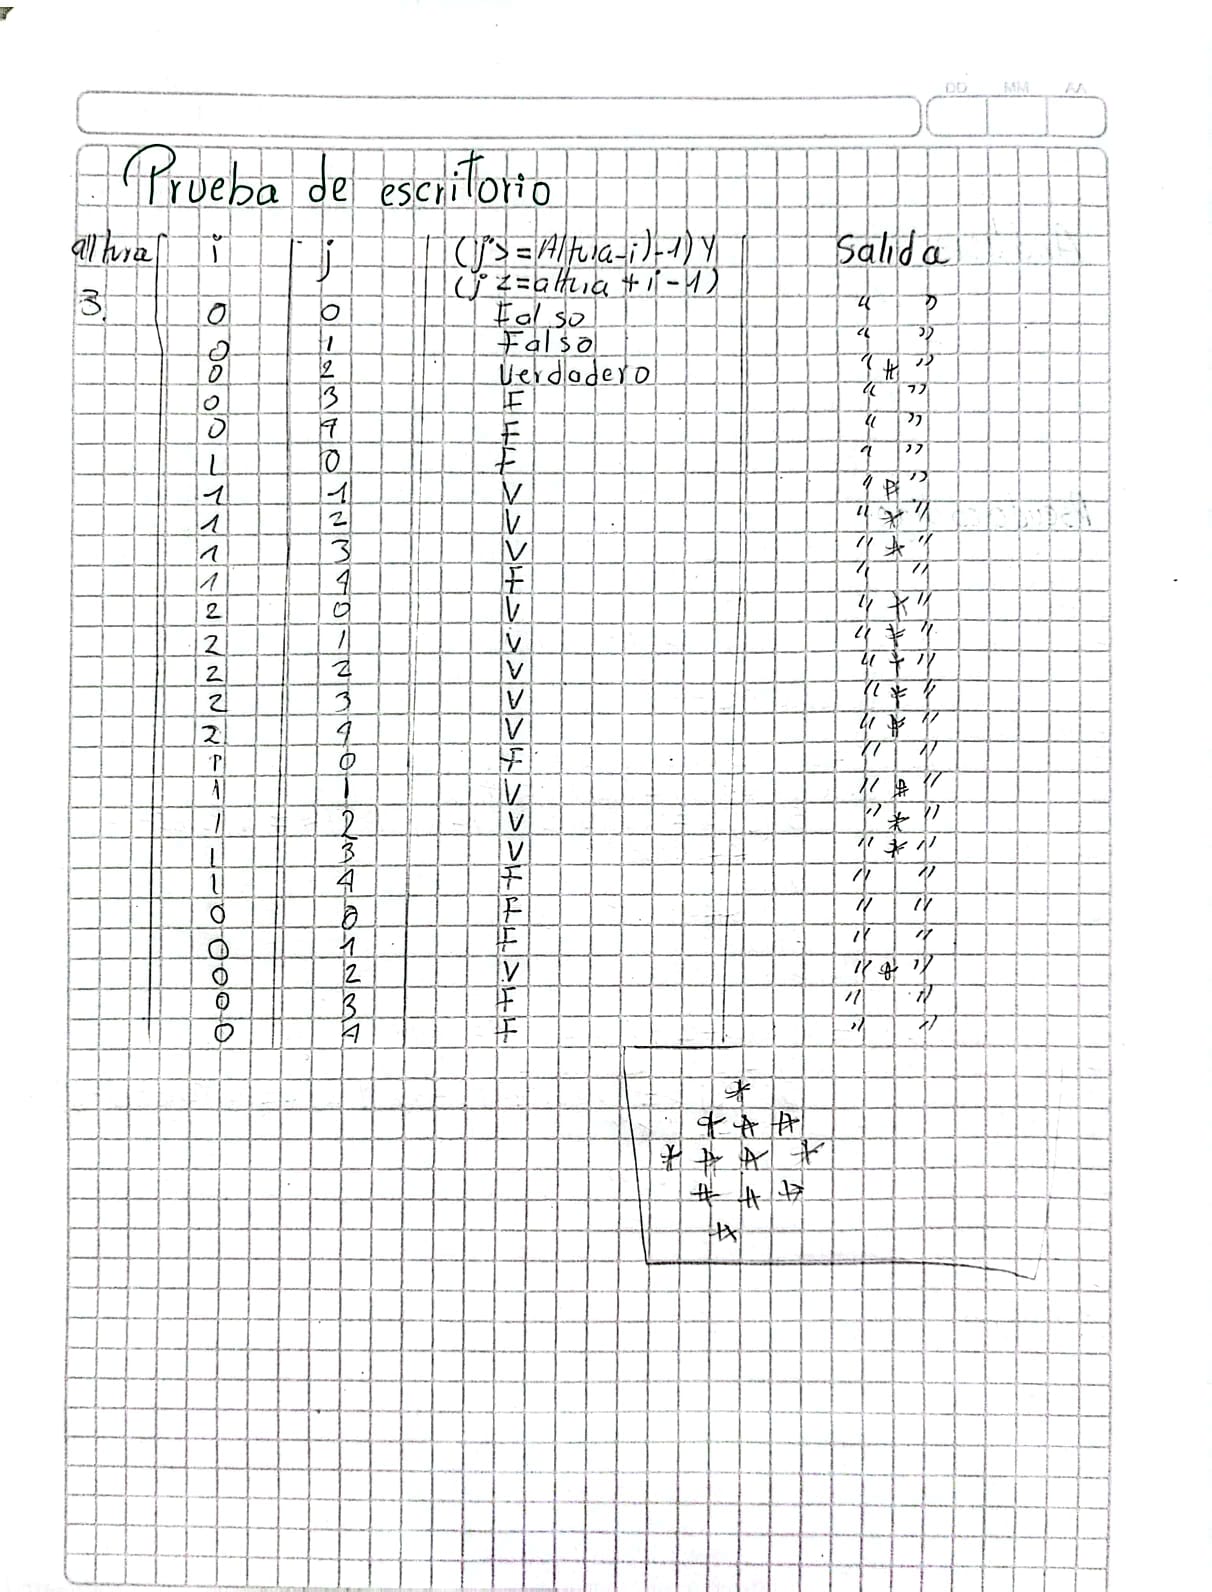 DD MM AA
Prueba de escritorio
altura i j (j>=Altura-i)-1) Y Salida
(j<=altura+i-1)
3. 0 0 Falso " "
0 1 Falso " "
0 2 Verdadero " * "
0 3 F " "
0 4 F " "
1 0 F " "
1 1 V " * "
1 2 V " * "
1 3 V " * "
1 4 F " "
2 0 V " * "
2 1 V " * "
2 2 V " * "
2 3 V " * "
2 4 V " * "
1 0 F " "
1 1 V " * "
1 2 V " * "
1 3 V " * "
1 4 F " "
0 0 F " "
0 1 F " "
0 2 V " * "
0 3 F " "
0 4 F " "
*
* * *
* * * *
* * *
*